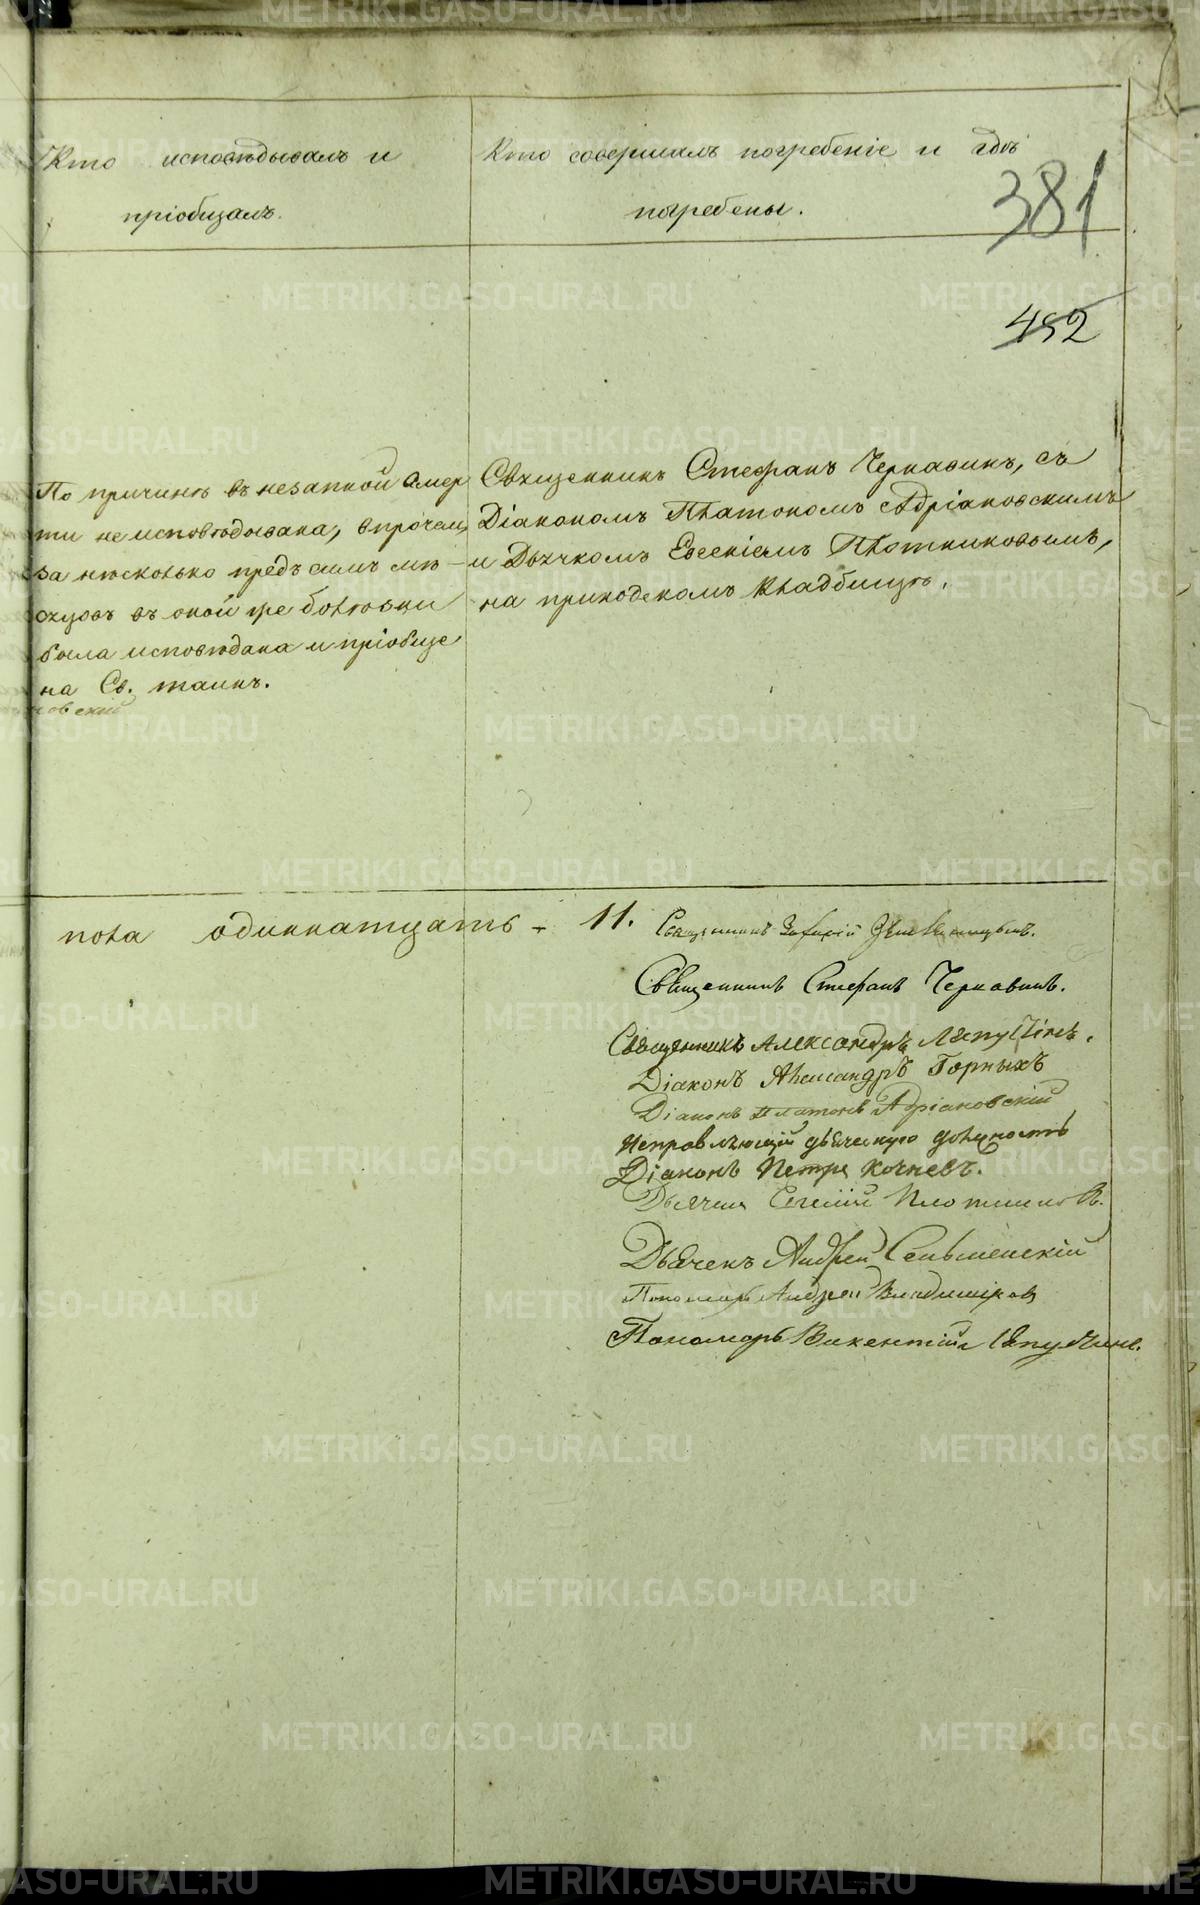 Кто исповѣдывалъ и
пріобщалъ.
Кто совершалъ погребеніе и гдѣ
погребены.
381
492
По причинѣ внезапной смер
ти не исповѣдывана, впрочемъ
за нѣсколько предъ симъ мѣ-
сяцовъ въ оной же болѣзни
была исповѣдана и пріобще
на Св. таинъ.
новскій
Священникъ Стефанъ Чернавинъ, съ
Діакономъ Платономъ Адріановскимъ
и Дьячкомъ Евгеніемъ Плотниковымъ,
на приходскомъ кладбищѣ.
пола одиннатцать - 11.
Священникъ
Священникъ Стефанъ Чернавинъ.
Священникъ Александръ Лапутинъ.
Діаконъ Александръ Горныхъ
Діаконъ Платонъ Адріановскій
Исправляющій дьяческую должность
Діаконъ Петръ Кочневъ.
Дьячекъ Евгеній Плотниковъ.
Дьячекъ Андрей Сельменскій
Пономарь Андрей Владиміровъ
Пономарь Викентій Лапутинъ.
METRIKI.GASO-URAL.RU